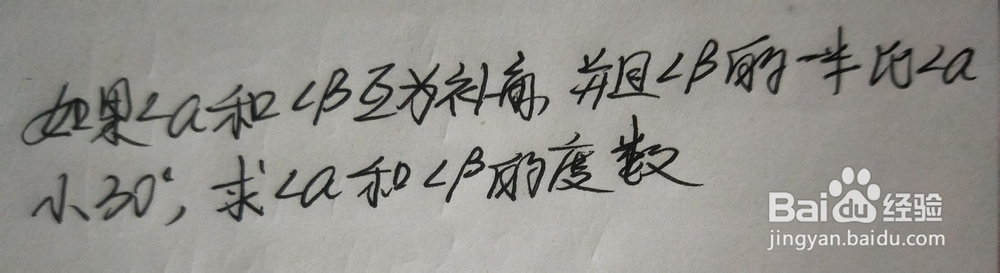 如果∠a和∠β互为补角,并且∠β的一半比∠a
小30°,求∠a和∠β的度数
Baidu经验
jingyan.baidu.com